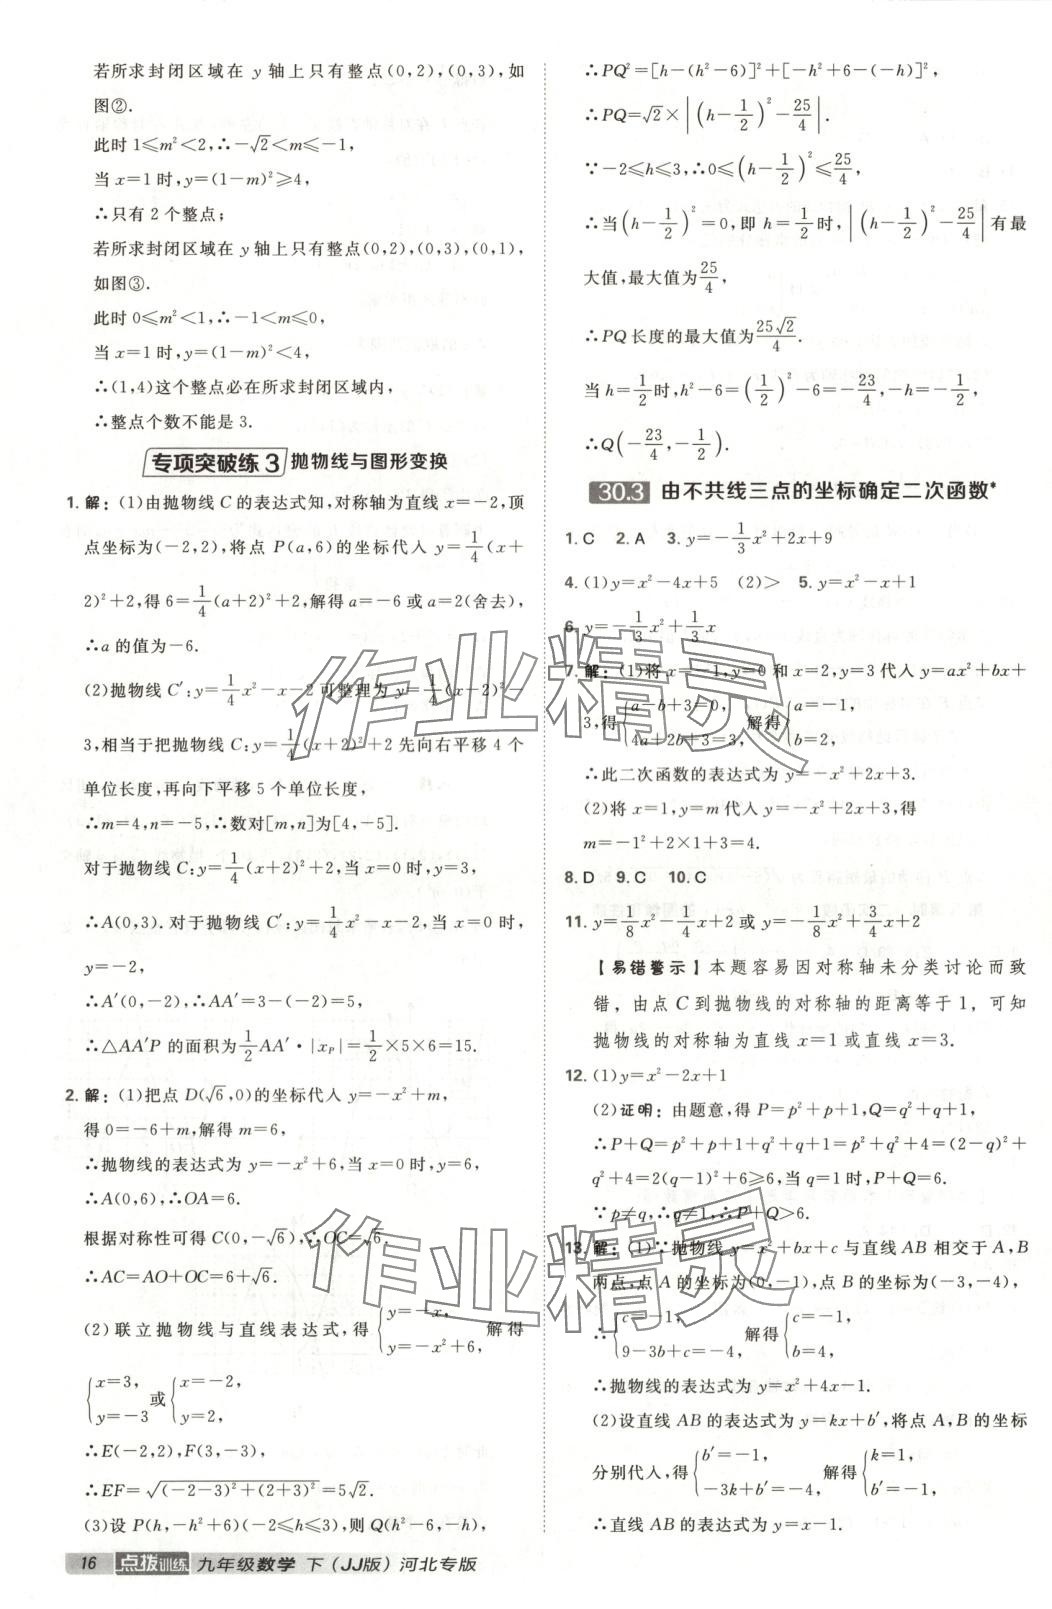 若所求封闭区域在 y 轴上只有整点(0,2),(0,3),如
图②.
此时 1≤m²<2,∴-√2<m≤-1,
当 x=1 时,y=(1-m)²≥4,
∴只有 2 个整点;
若所求封闭区域在 y 轴上只有整点(0,2),(0,3),(0,1),
如图③.
此时 0≤m²<1,∴-1<m≤0,
当 x=1 时,y=(1-m)²<4,
∴(1,4)这个整点必在所求封闭区域内,
∴整点个数不能是 3.
专项突破练 3 抛物线与图形变换
1. 解:(1)由抛物线 C 的表达式知,对称轴为直线 x=-2,顶
点坐标为(-2,2),将点 P(a,6)的坐标代入 y=1/4(x+
2)²+2,得 6=1/4(a+2)²+2,解得 a=-6 或 a=2(舍去),
∴a 的值为-6.
(2)抛物线 C′:y=1/4x²-x-2 可整理为 y=1/4(x-2)²-
3,相当于把抛物线 C:y=1/4(x+2)²+2 先向右平移 4 个
单位长度,再向下平移 5 个单位长度,
∴m=4,n=-5,∴数对[m,n]为[4,-5].
对于抛物线 C:y=1/4(x+2)²+2,当 x=0 时,y=3,
∴A(0,3). 对于抛物线 C′:y=1/4x²-x-2,当 x=0 时,
y=-2,
∴A′(0,-2),∴AA′=3-(-2)=5,
∴△AA′P 的面积为1/2AA′·|xₚ|=1/2×5×6=15.
2. 解:(1)把点 D(√6,0)的坐标代入 y=-x²+m,
得 0=-6+m,解得 m=6,
∴抛物线的表达式为 y=-x²+6,当 x=0 时,y=6,
∴A(0,6),∴OA=6.
根据对称性可得 C(0,-√6),∴OC=√6,
∴AC=AO+OC=6+√6.
(2)联立抛物线与直线表达式,得{y=-x, y=-x²+6, 解得
{x=3, y=-3 或{x=-2, y=2,
∴E(-2,2),F(3,-3),
∴EF=√((-2-3)²+(2+3)²)=5√2.
(3)设 P(h,-h²+6)(-2≤h≤3),则 Q(h²-6,-h),
∴PQ²=[h-(h²-6)]²+[-h²+6-(-h)]²,
∴PQ=√2×|(h-1/2)²-25/4|.
∵-2≤h≤3,∴0≤(h-1/2)²≤25/4,
∴当(h-1/2)²=0,即 h=1/2时,|(h-1/2)²-25/4|有最
大值,最大值为25/4,
∴PQ 长度的最大值为25√2/4.
当 h=1/2时,h²-6=(1/2)²-6=-23/4,-h=-1/2,
∴Q(-23/4,-1/2).
30.3 由不共线三点的坐标确定二次函数*
1. C 2. A 3. y=-1/3x²+2x+9
4. (1)y=x²-4x+5 (2)> 5. y=x²-x+1
6. y=-1/3x²+1/3x
7. 解:(1)将 x=-1,y=0 和 x=2,y=3 代入 y=ax²+bx+
3,得{a-b+3=0, 4a+2b+3=3, 解得{a=-1, b=2,
∴此二次函数的表达式为 y=-x²+2x+3.
(2)将 x=1,y=m 代入 y=-x²+2x+3,得
m=-1²+2×1+3=4.
8. D 9. C 10. C
11. y=1/8x²-1/4x+2 或 y=-1/8x²+3/4x+2
【易错警示】本题容易因对称轴未分类讨论而致
错,由点 C 到抛物线的对称轴的距离等于 1,可知
抛物线的对称轴为直线 x=1 或直线 x=3.
12. (1)y=x²-2x+1
(2)证明:由题意,得 P=p²+p+1,Q=q²+q+1,
∴P+Q=p²+p+1+q²+q+1=p²+q²+4=(2-q)²+
q²+4=2(q-1)²+6≥6,当 q=1 时,P+Q=6.
∵p≠q,∴q≠1,∴P+Q>6.
13. 解:(1)∵抛物线 y=x²+bx+c 与直线 AB 相交于 A,B
两点,点 A 的坐标为(0,-1),点 B 的坐标为(-3,-4),
∴{c=-1, 9-3b+c=-4, 解得{c=-1, b=4,
∴抛物线的表达式为 y=x²+4x-1.
(2)设直线 AB 的表达式为 y=kx+b′,将点 A,B 的坐标
分别代入,得{b′=-1, -3k+b′=-4, 解得{k=1, b′=-1,
∴直线 AB 的表达式为 y=x-1.
作业精灵
作业精灵
16 点拨训练 九年级数学 下(JJ版)河北专版